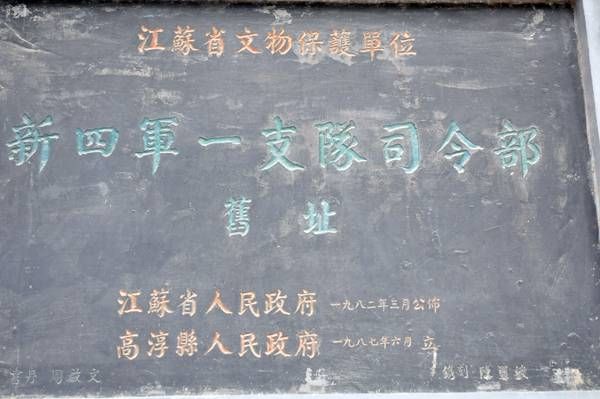 江蘇省文物保護單位
新四軍一支隊司令部
舊址
江蘇省人民政府 一九八二年三月公佈
高淳縣人民政府 一九八七年六月 立